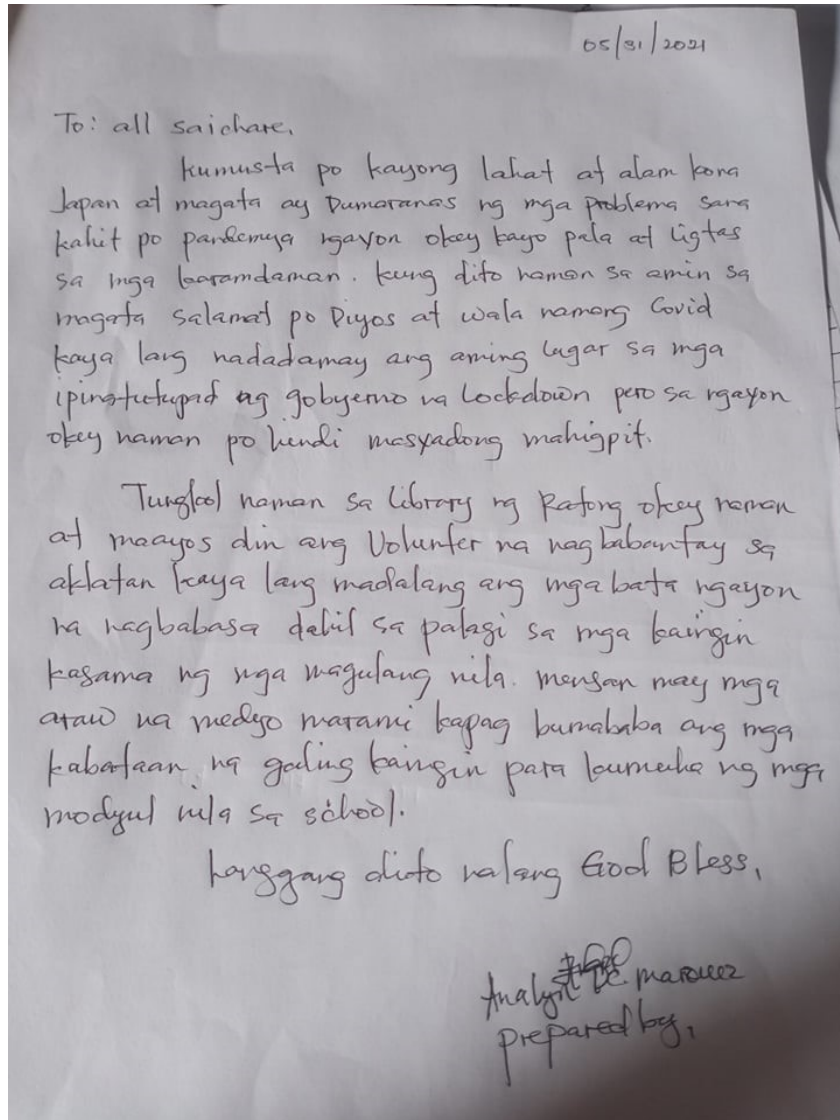 05/31/2021
To: all saichare,
Kumusta po kayong lahat at alam kona
Japan at magata ay Dumaranas ng mga problema sana
kahit po pandemya ngayon okey kayo pala at ligtas
sa mga karamdaman. kung dito naman sa amin sa
magata salamat po Diyos at wala namang Covid
kaya lang nadadamay ang aming lugar sa mga
ipinatutupad ng gobyerno na Lockdown pero sa ngayon
okey naman po hindi masyadong mahigpit.
Tungkol naman sa library ng Ratong okey naman
at maayos din ang Volunter na nagbabantay sa
aklatan kaya lang madalang ang mga bata ngayon
na nagbabasa dahil sa palagi sa mga kaingin
kasama ng mga magulang nila. mensan may mga
araw na medyo marami kapag bumababa ang mga
kabataan na galing kaingin para kumuha ng mga
modyul nila sa school.
hanggang dito nalang God Bless,
Analyn De marquez
prepared by,